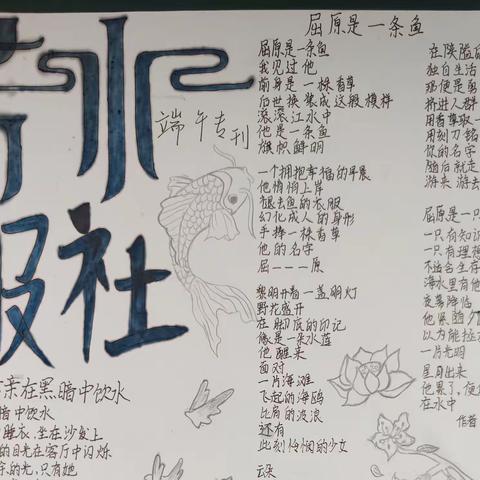 水
报社
端午专刊
屈原是一条鱼
屈原是一条鱼
我见过他
前身是一棵香草
后世换装成这般模样
滚滚江水中
他是一条鱼
旗帜鲜明
一个拥抱幸福的早晨
他悄悄上岸
褪去鱼的衣服
幻化成人的身形
手捧一棵香草
他的名字
屈---原
黎明开着一盏明灯
野花盛开
在脚底的印记
像是一朵水莲
他醒来
面对
一片海滩
飞起的海鸥
比肩的波浪
还有
此刻怜悯的少女
云朵
在陕隘的
独自生活
那便是
挤进人群
用香草取一
用刻刀铭
你的名字
随后就走
游来 游去
屈原是一只
一只有知识
一只有理想
不适合生存
海水里有他
夜幕降临
他累
以为能拉
一片光明
星月出来
他累了，便
在水中
作者
亲在黑暗中饮水
暗中饮水
睡衣，坐在沙发上
的目光在客厅中闪烁
的光，只有她